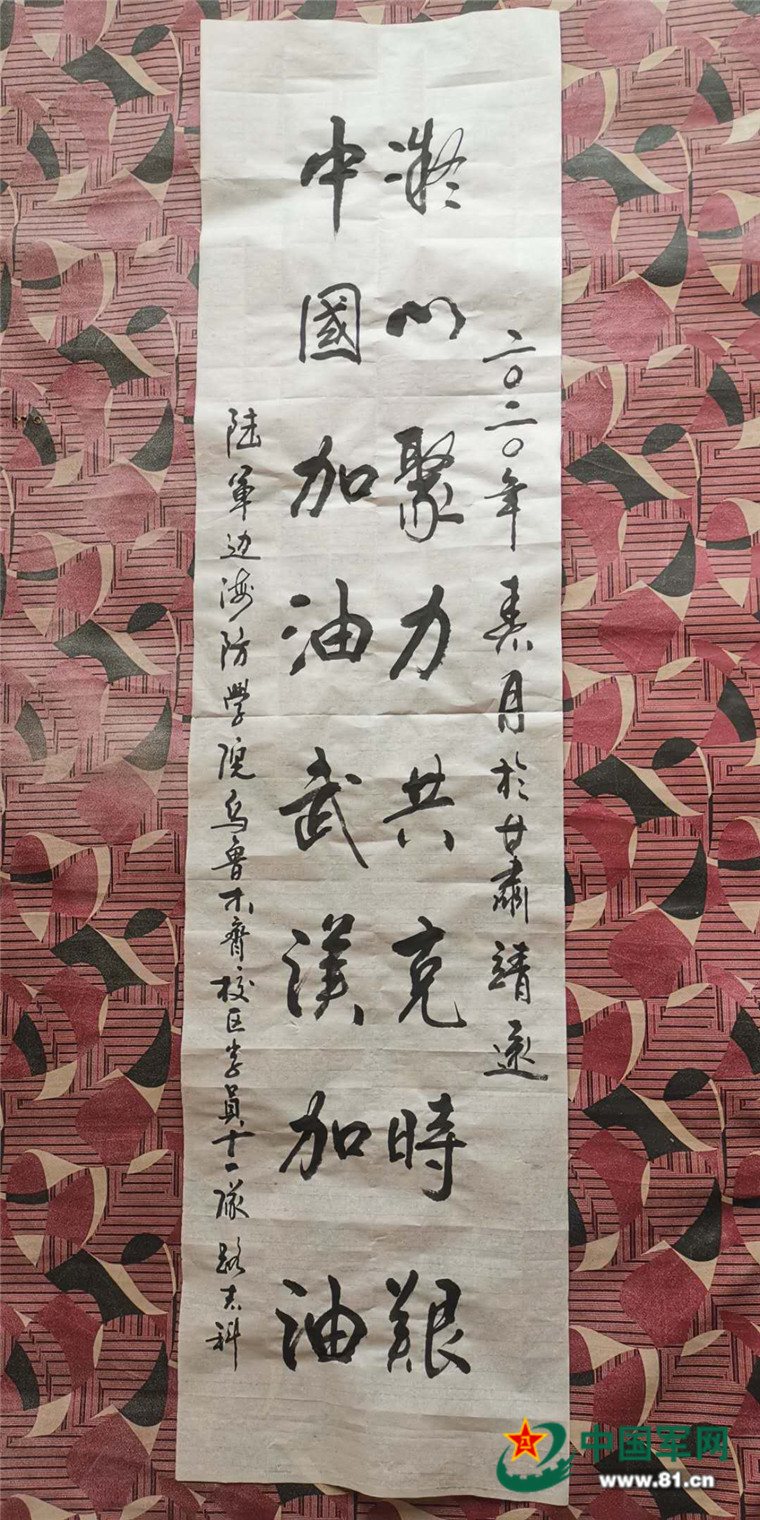 二〇二〇年春月於甘肅靖遠
凝心聚力共克時艱
中國加油武漢加油
陆軍边海防學院乌鲁木齊校区学員十一隊路志科
中国军网
www.81.cn